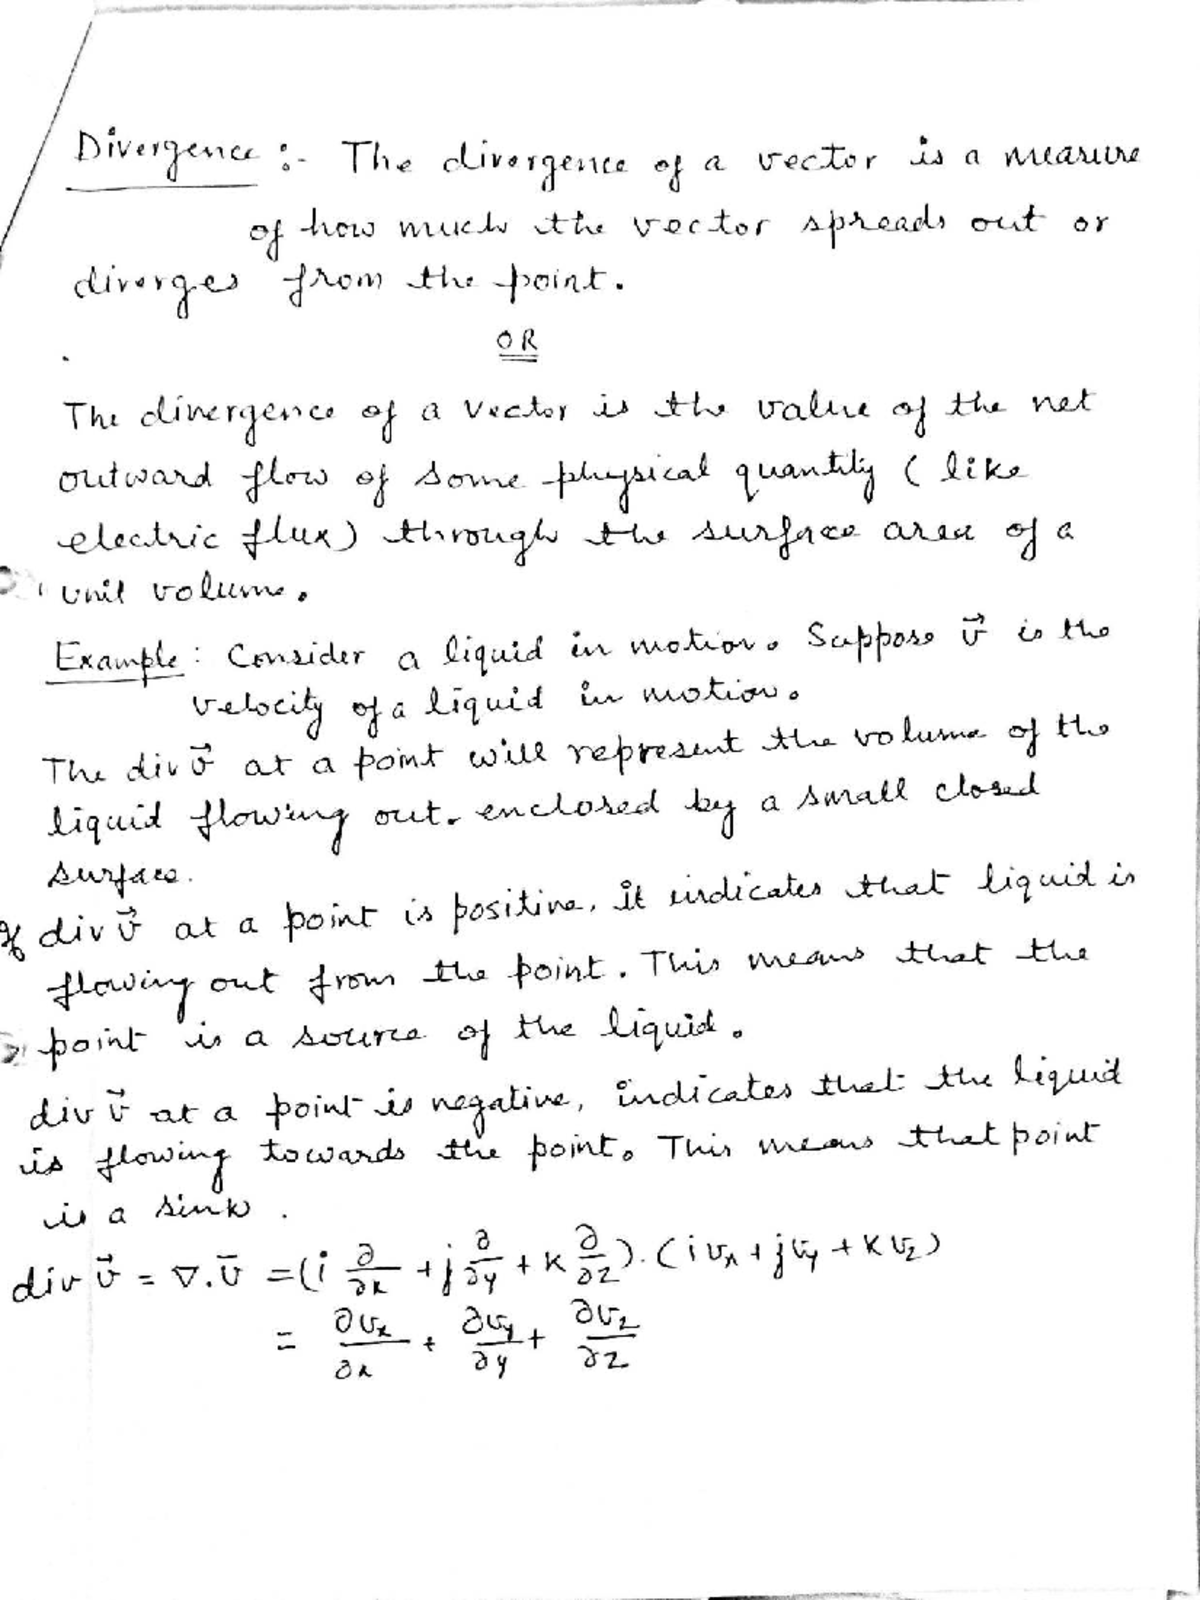 Divergence :- The divergence of a vector is a measure
of how much the vector spreads out or
diverges from the point.
OR
The divergence of a vector is the value of the net
outward flow of some physical quantity ( like
electric flux) through the surface area of a
unit volume.
Example : Consider a liquid in motion. Suppose v⃗ is the
velocity of a liquid in motion.
The div v⃗ at a point will represent the volume of the
liquid flowing out. enclosed by a small closed
surface.
If div v⃗ at a point is positive, it indicates that liquid is
flowing out from the point. This means that the
point is a source of the liquid.
div v⃗ at a point is negative, indicates that the liquid
is flowing towards the point. This means that point
is a sink.
div v⃗ = ∇. v̄ = (i ∂/∂x + j ∂/∂y + k ∂/∂z). (i vx + j vy + k vz)
= ∂vx/∂x + ∂vy/∂y + ∂vz/∂z